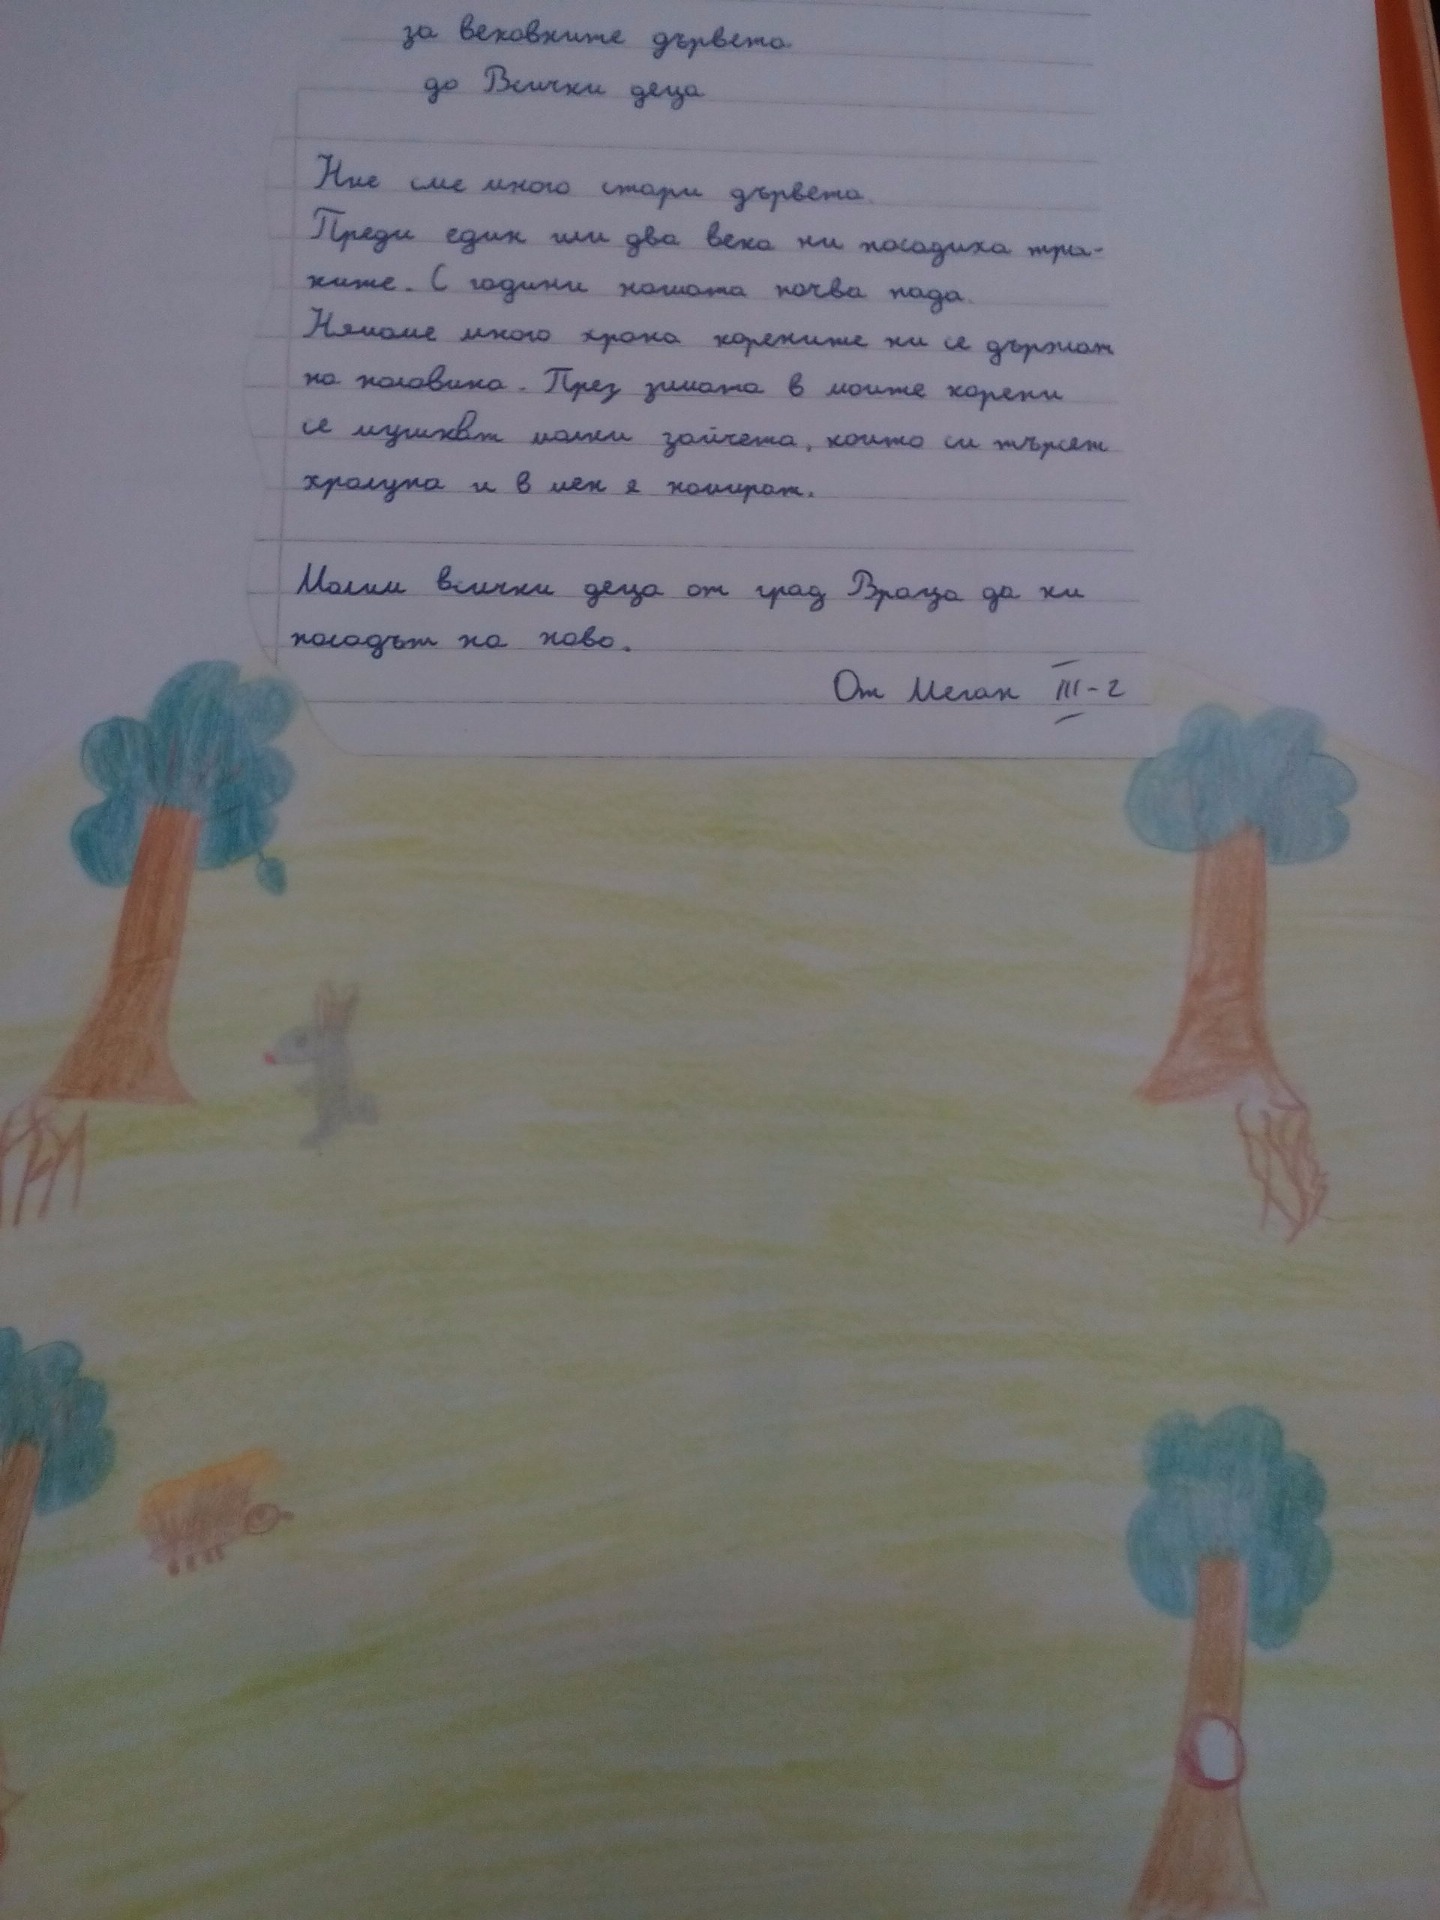 за вековните дървета
до Всички деца
Ние сме много стари дървета.
Преди един или два века ни посадиха тра-
ките. С години нашата почва пада.
Нямаме много храна корените ни се държат
на половина. През зимата в моите корени
се мушкват малки зайчета, които си търсят
хралупа и в мен я намират.
Молим всички деца от град Враца да ни
посадът на ново.
От Меган III-г